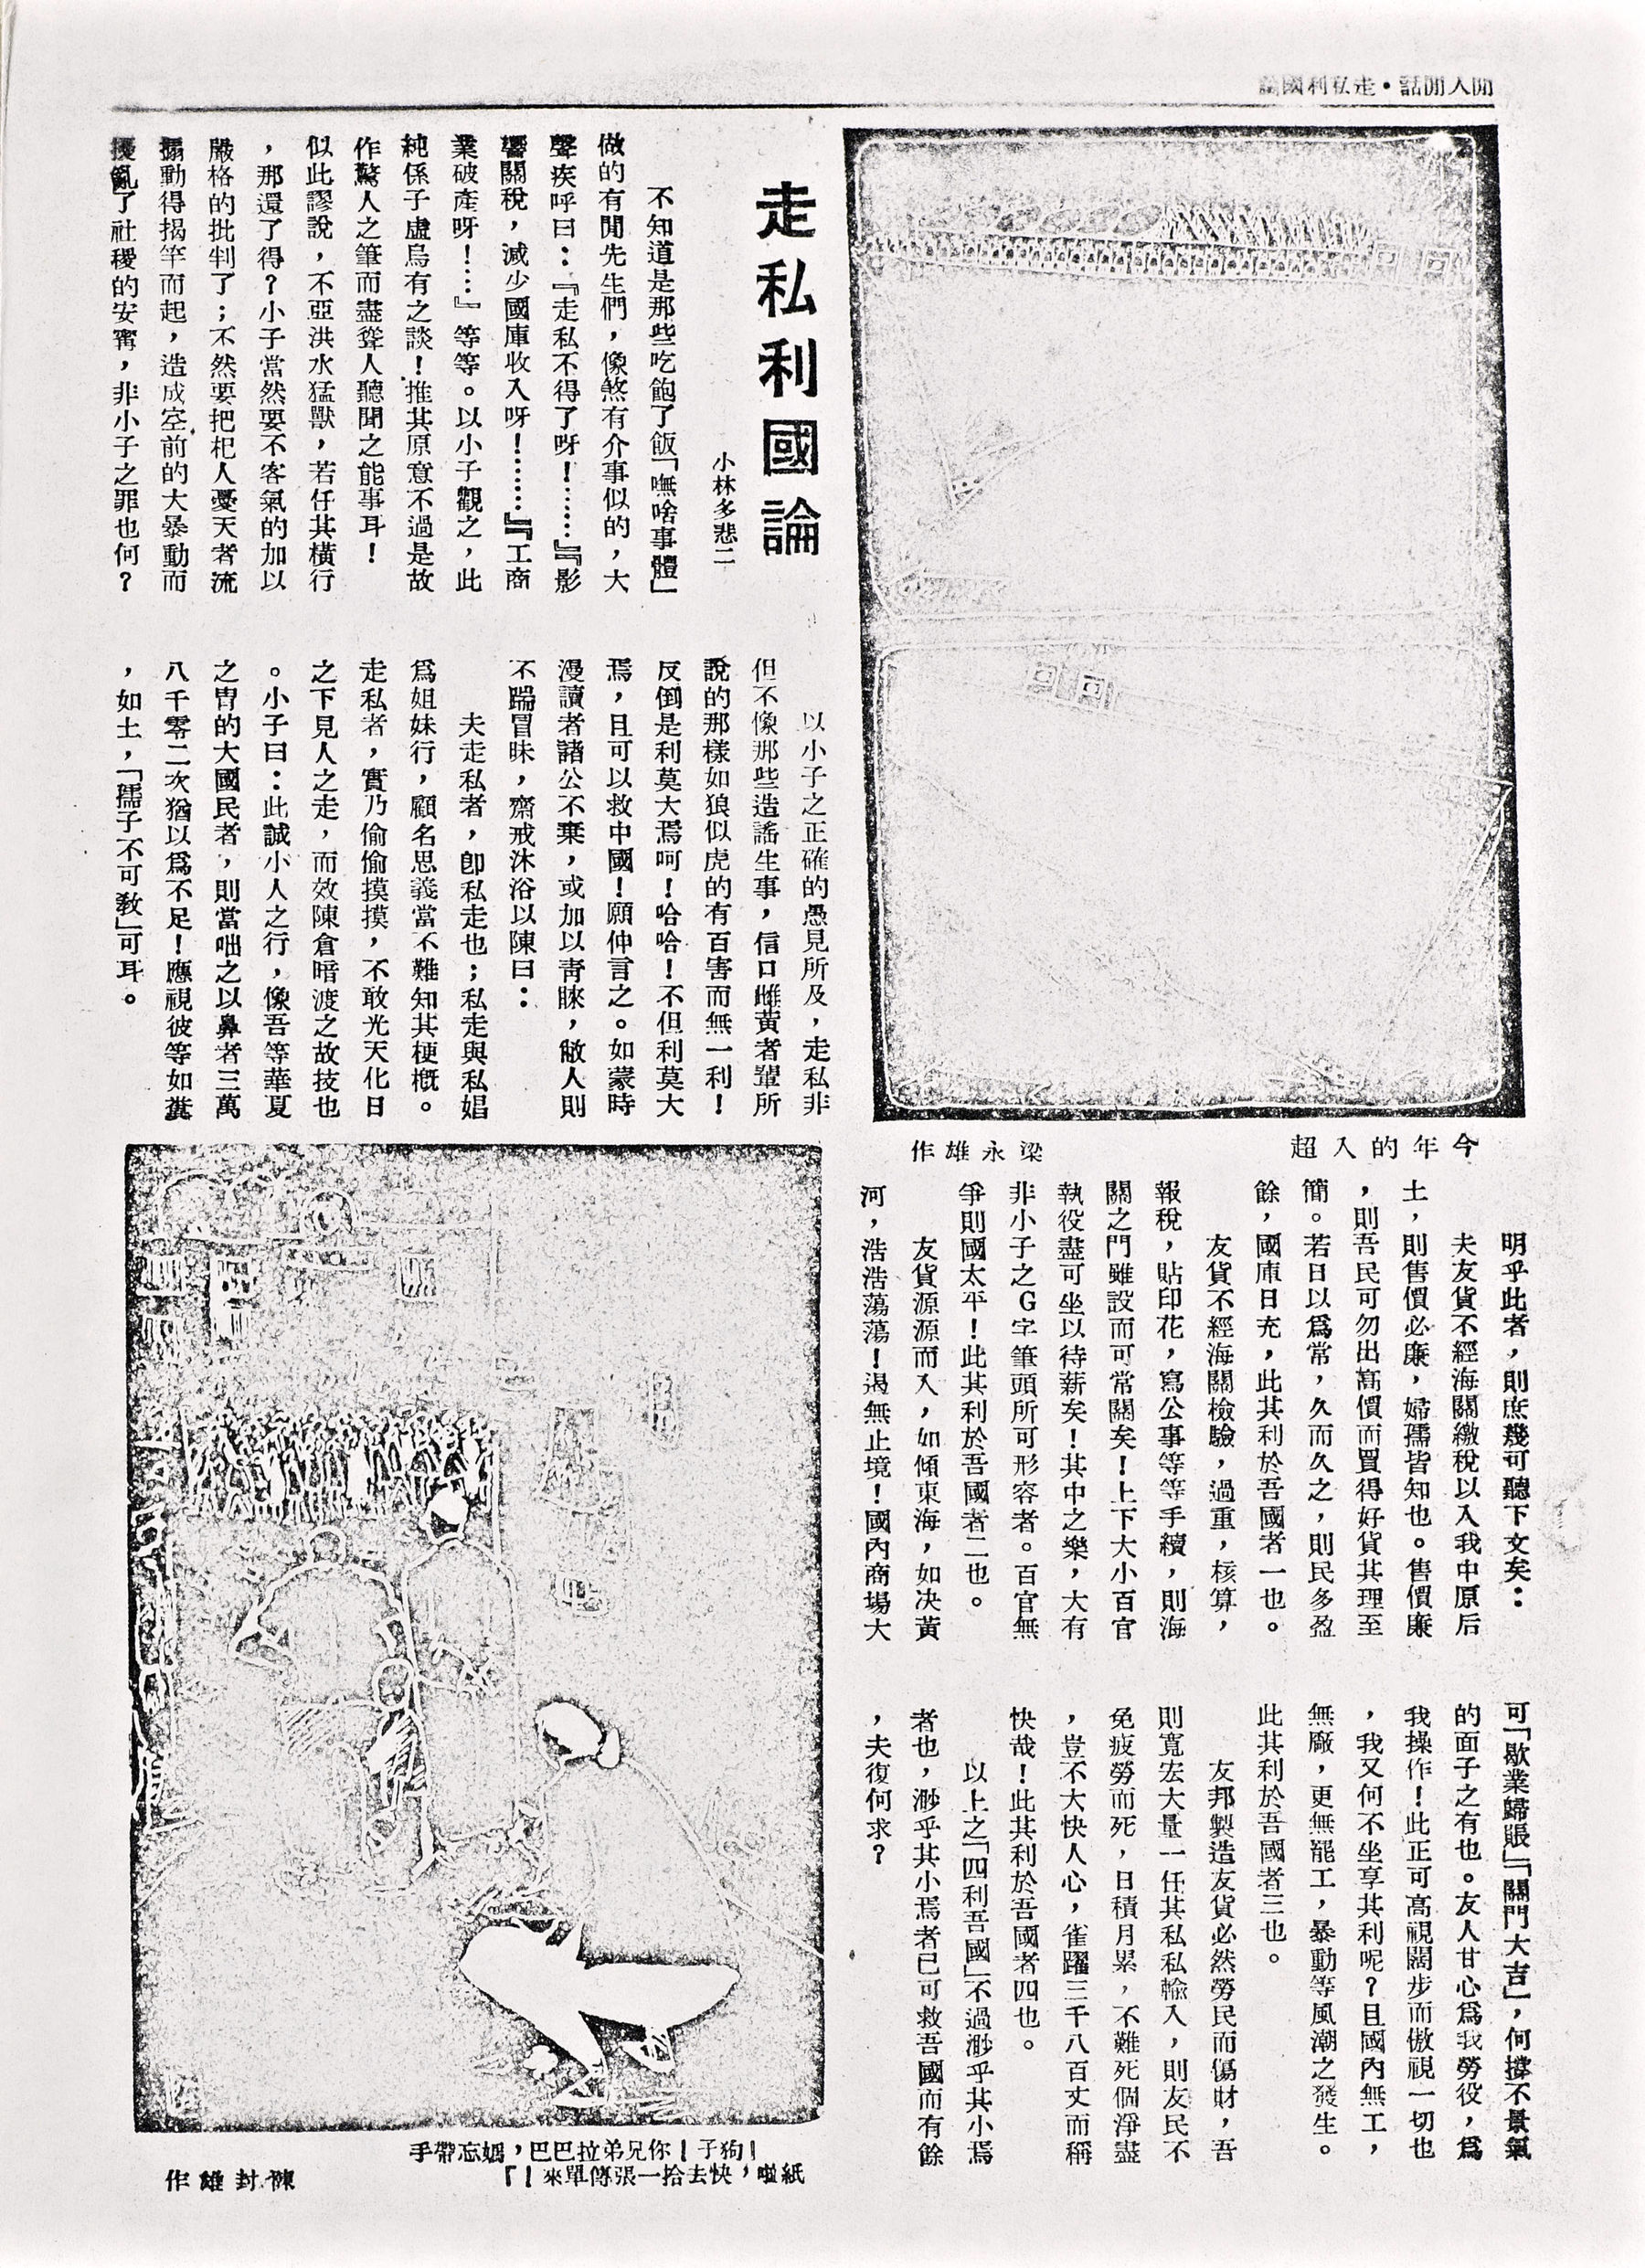 閒人閒話・走私利國論
走私利國論
小林多悲二
不知道是那些吃飽了飯「嘸啥事體」
做的有閒先生們，像煞有介事似的，大
聲疾呼曰：『走私不得了呀！……』『影
響關稅，減少國庫收入呀！……』『工商
業破產呀！…』等等。以小子觀之，此
純係子虛烏有之談！推其原意不過是故
作驚人之筆而盡聳人聽聞之能事耳！
似此謬說，不亞洪水猛獸，若任其橫行
，那還了得？小子當然要不客氣的加以
嚴格的批判了；不然要把杞人憂天者流
搧動得揭竿而起，造成空前的大暴動而
擾亂了社稷的安甯，非小子之罪也何？
以小子之正確的愚見所及，走私非
但不像那些造謠生事，信口雌黃者輩所
說的那樣如狼似虎的有百害而無一利！
反倒是利莫大焉呵！哈哈！不但利莫大
焉，且可以救中國！願伸言之。如蒙時
漫讀者諸公不棄，或加以靑睞，敝人則
不踹冒昧，齋戒沐浴以陳曰：
夫走私者，卽私走也；私走與私娼
爲姐妹行，顧名思義當不難知其梗槪。
走私者，實乃偷偷摸摸，不敢光天化日
之下見人之走，而效陳倉暗渡之故技也
。小子曰：此誠小人之行，像吾等華夏
之胄的大國民者，則當咄之以鼻者三萬
八千零二次猶以爲不足！應視彼等如糞
，如土，「孺子不可敎」可耳。
今年的入超
梁永雄作
明乎此者，則庶幾可聽下文矣：
夫友貨不經海關繳稅以入我中原后
土，則售價必廉，婦孺皆知也。售價廉
，則吾民可勿出高價而買得好貨其理至
簡。若日以爲常，久而久之，則民多盈
餘，國庫日充，此其利於吾國者一也。
友貨不經海關檢驗，過重，核算，
報稅，貼印花，寫公事等等手續，則海
關之門雖設而可常關矣！上下大小百官
執役盡可坐以待薪矣！其中之樂，大有
非小子之G字筆頭所可形容者。百官無
爭則國太平！此其利於吾國者二也。
友貨源源而入，如傾東海，如決黃
河，浩浩蕩蕩！遏無止境！國內商場大
可「歇業歸賬」「關門大吉」，何撐不景氣
的面子之有也。友人甘心爲我勞役，爲
我操作！此正可高視闊步而傲視一切也
，我又何不坐享其利呢？且國內無工，
無廠，更無罷工，暴動等風潮之發生。
此其利於吾國者三也。
友邦製造友貨必然勞民而傷財，吾
則寬宏大量一任其私私輸入，則友民不
免疲勞而死，日積月累，不難死個淨盡
，豈不大快人心，雀躍三千八百丈而稱
快哉！此其利於吾國者四也。
以上之「四利吾國」不過渺乎其小焉
者也，渺乎其小焉者已可救吾國而有餘
，夫復何求？
狗子！你兄弟拉巴巴，姆忘帶手
紙啦，快去拾一張傳單來！」
陳封雄作